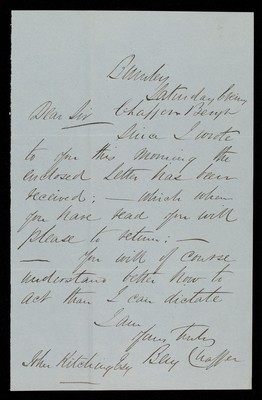 Burnley
Saturday Evening
Dear Sir
Since I wrote
to you this morning the
enclosed letter has been
received: — which when
you have read you will
please to return: —
— You will of course
understand better how to
act than I can dictate
I am
Yours truly
John Kitching Esq Chaffer